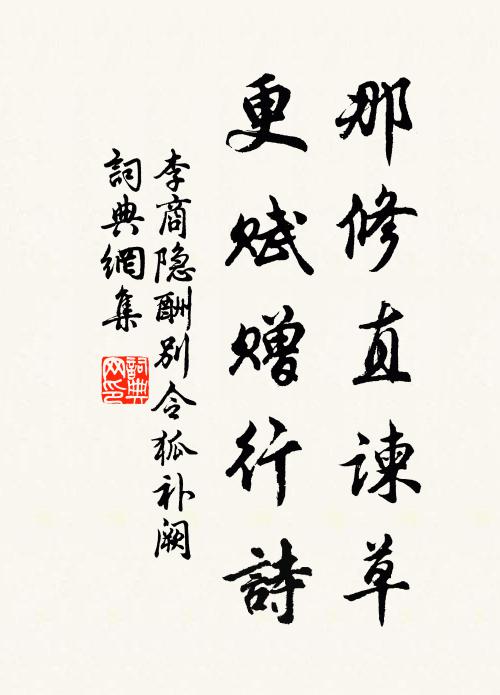 那修直谏草
更赋赠行詩
李商隐酬别令狐补阙
詞典網集
詞典
网印